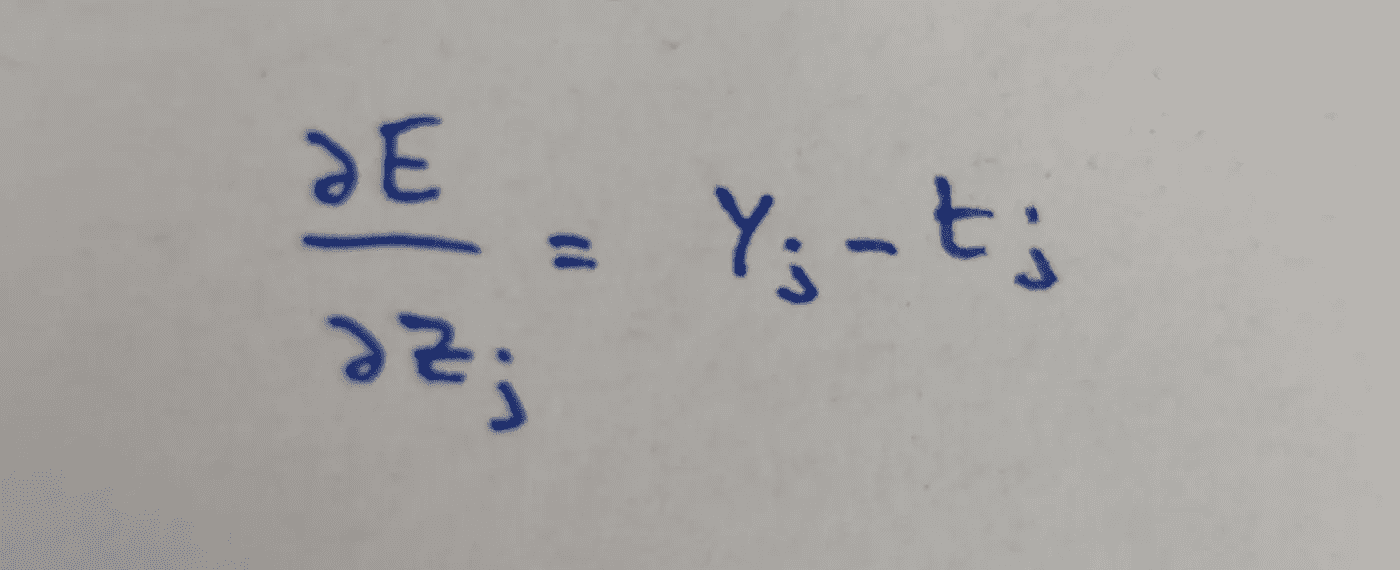 ∂E/∂z_j = y_j - t_j